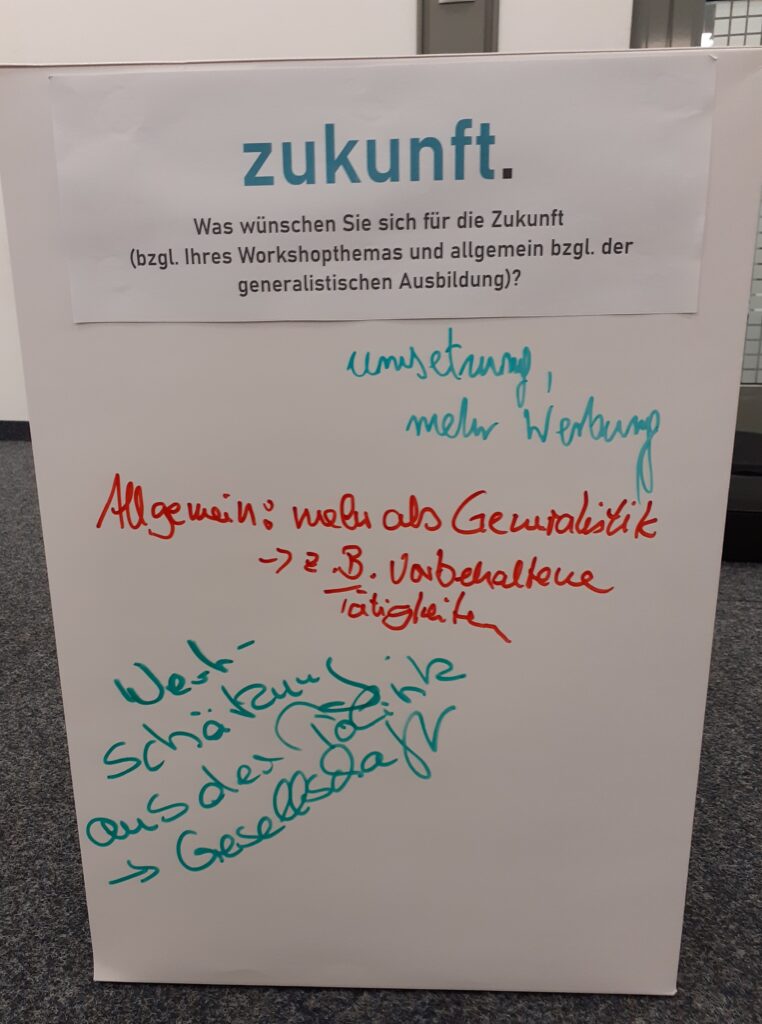 zukunft.
Was wünschen Sie sich für die Zukunft
(bzgl. Ihres Workshopthemas und allgemein bzgl. der
generalistischen Ausbildung)?
umsetzung,
mehr Werbung
Allgemein: mehr als Generalistik
→ z.B. Vorbehaltene
Tätigkeiten
Wert-
schätzung
aus der Politik
→ Gesellschaft